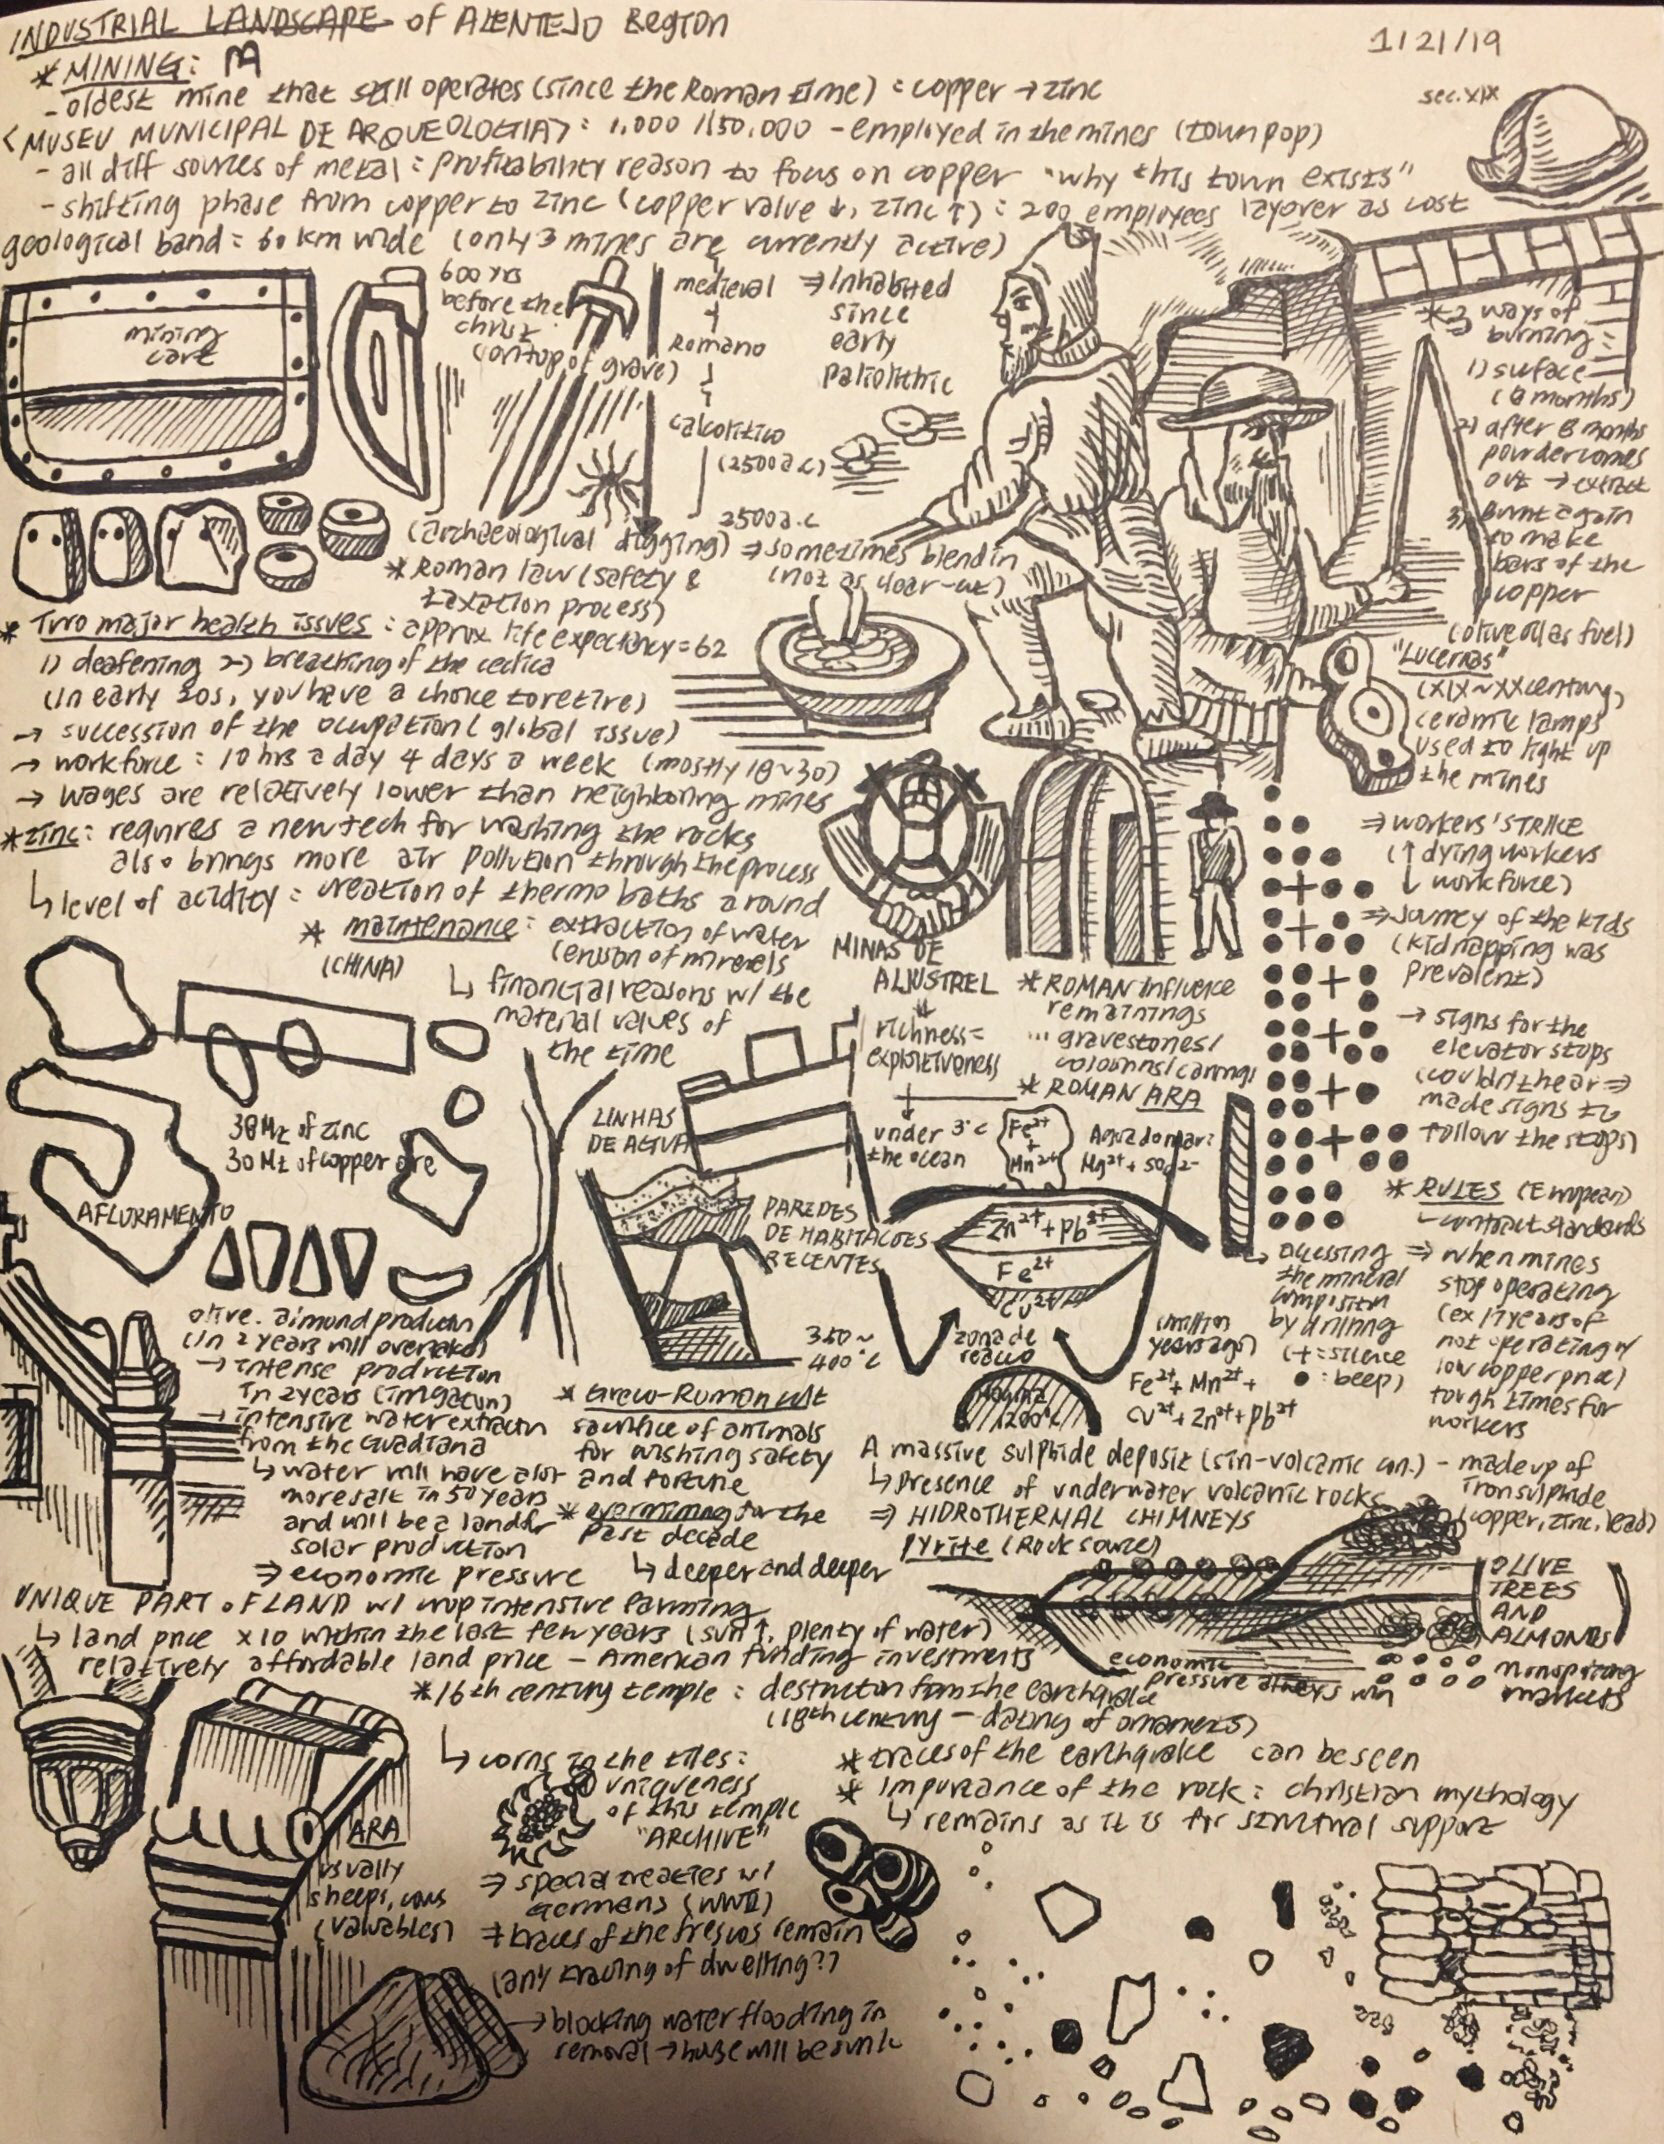 INDUSTRIAL LANDSCAPE of ALENTEJO Region
1/21/19
* MINING:
- oldest mine that still operates (since the Roman time) = copper → zinc
sec. XIX
<MUSEU MUNICIPAL DE ARQUEOLOGIA> : 1,000 / 150,000 - employed in the mines (town pop)
- all diff sources of metal = profitability reason to focus on copper "why this town exists"
- shifting phase from copper to zinc (copper value ↓, zinc ↑) = 200 employees layover as cost
geological band = 60 km wide (only 3 mines are currently active)
mining cart
600 yrs
before the
christ
(on top of grave)
medieval
Romano
calcolitico
(2500 a.c)
2500 a.c
⇒ Inhabited
since
early
paliolithic
(archaeological digging) ⇒ sometimes blend in
(not as clear-cut)
* 3 ways of
burning =
1) surface
(6 months)
2) after 6 months
powder comes
out → extract
3) Burnt again
to make
bars of the
copper
* Roman law (safety &
taxation process)
* Two major health issues : approx life expectancy = 62
1) deafening 2) breaking of the
(in early 50s, you have a choice to retire)
→ succession of the ocupation (global issue)
→ workforce : 10 hrs a day 4 days a week (mostly 18~30)
→ wages are relatively lower than neighboring mines
(olive oil as fuel)
"Lucernas"
(XIX~XX century)
ceramic lamps
used to light up
the mines
* zinc: requires a new tech for washing the rocks
also brings more air pollution through the process
↳ level of acidity = creation of thermo baths around
* maintenance: extraction of water
(CHINA)
(erosion of minerals
↳ financial reasons w/ the
material values of
the time
MINAS DE
ALJUSTREL
richness =
exploitiveness
under
the ocean
* ROMAN Influence
remainings
... gravestones/
coloumns/carvings
* ROMAN ARA
⇒ workers' STRIKE
(↑ dying workers
↓ workforce)
⇒ Journey of the kids
(kidnapping was
prevalent)
→ signs for the
elevator stops
(couldn't hear ⇒
made signs to
follow the stops)
* RULES (European)
- contract standards
⇒ when mines
stop operating
(ex) 17 years of
not operating w/
low copper price)
tough times for
workers
38 Mt of zinc
30 Mt of copper ore
AFLURAMENTO
LINHAS
DE AGUA
PAREDES
DE HABITACOES
RECENTES
350~
400°c
3°c
Fe²⁺
+
Mn²⁺
Agua do mar:
Mg²⁺ + SO₄²⁻
Zn²⁺ + Pb²⁺
Fe²⁺
Cu²⁺
zona de
reacao
1200°c
(million
years ago)
Fe²⁺ + Mn²⁺ +
Cu²⁺ + Zn²⁺ + Pb²⁺
the mineral
composition
by drilling
(+ = silence
● : beep)
olive. almond production
(in 2 years will overtake)
→ intense production
in 2 years (irrigation)
→ intensive water extraction
from the Guadiana
↳ water will have a lot
more salt in 50 years
and will be a land for
solar production
⇒ economic pressure
* Greco-Roman cult
sacrifice of animals
for wishing safety
and fortune
* overmining for the
past decade
↳ deeper and deeper
A massive sulphide deposit (sin-volcanic con.) - made up of
iron sulphide
(copper, zinc, lead)
↳ presence of underwater volcanic rocks
⇒ HIDROTHERMAL CHIMNEYS
pyrite (Rock source)
UNIQUE PART OF LAND w/ crop intensive farming
↳ land price x10 within the last few years (sun ↑, plenty of water)
relatively affordable land price - American funding investments
OLIVE
TREES
AND
ALMONDS
monopoling
markets
economic
pressure always win
* 16th century temple : destruction from the earthquake
(18th century - dating of ornaments)
↳ corns in the tiles :
uniqueness
of this temple
"ARCHIVE"
* traces of the earthquake can be seen
* importance of the rock : christian mythology
↳ remains as it is for structural support
ARA
usually
sheeps, cows
(valuables)
⇒ special treaties w/
Germans (WWII)
⇒ traces of the frescos remain
(any tracing of dwelling??)
→ blocking water flooding in
removal → house will be sunk